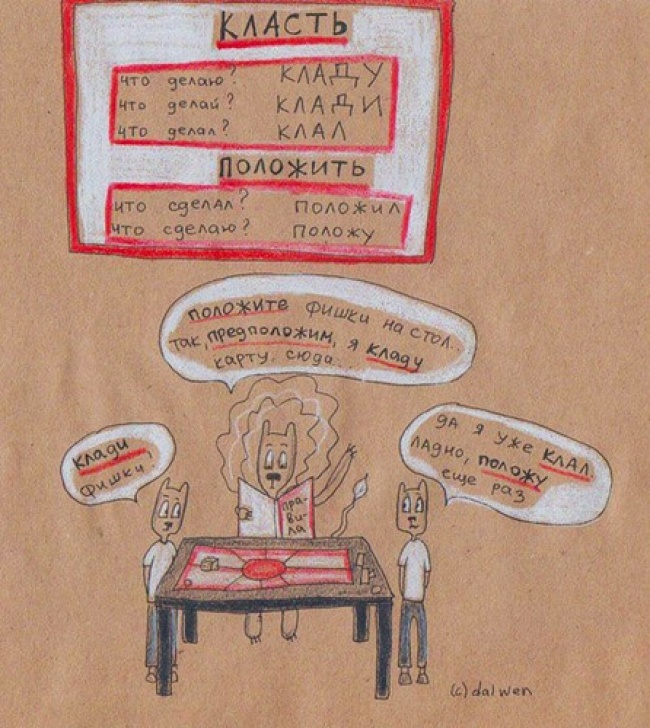 КЛАСТЬ
что делаю? КЛАДУ
что делай? КЛАДИ
что делал? КЛАЛ
ПОЛОЖИТЬ
что сделал? ПОЛОЖИЛ
что сделаю? ПОЛОЖУ
положите фишки на стол..
так, предположим, я кладу
карту. сюда...
клади
фишки,
да я уже клал.
ладно, положу
еще раз
пра-
ви-
ла
(c) dalwen